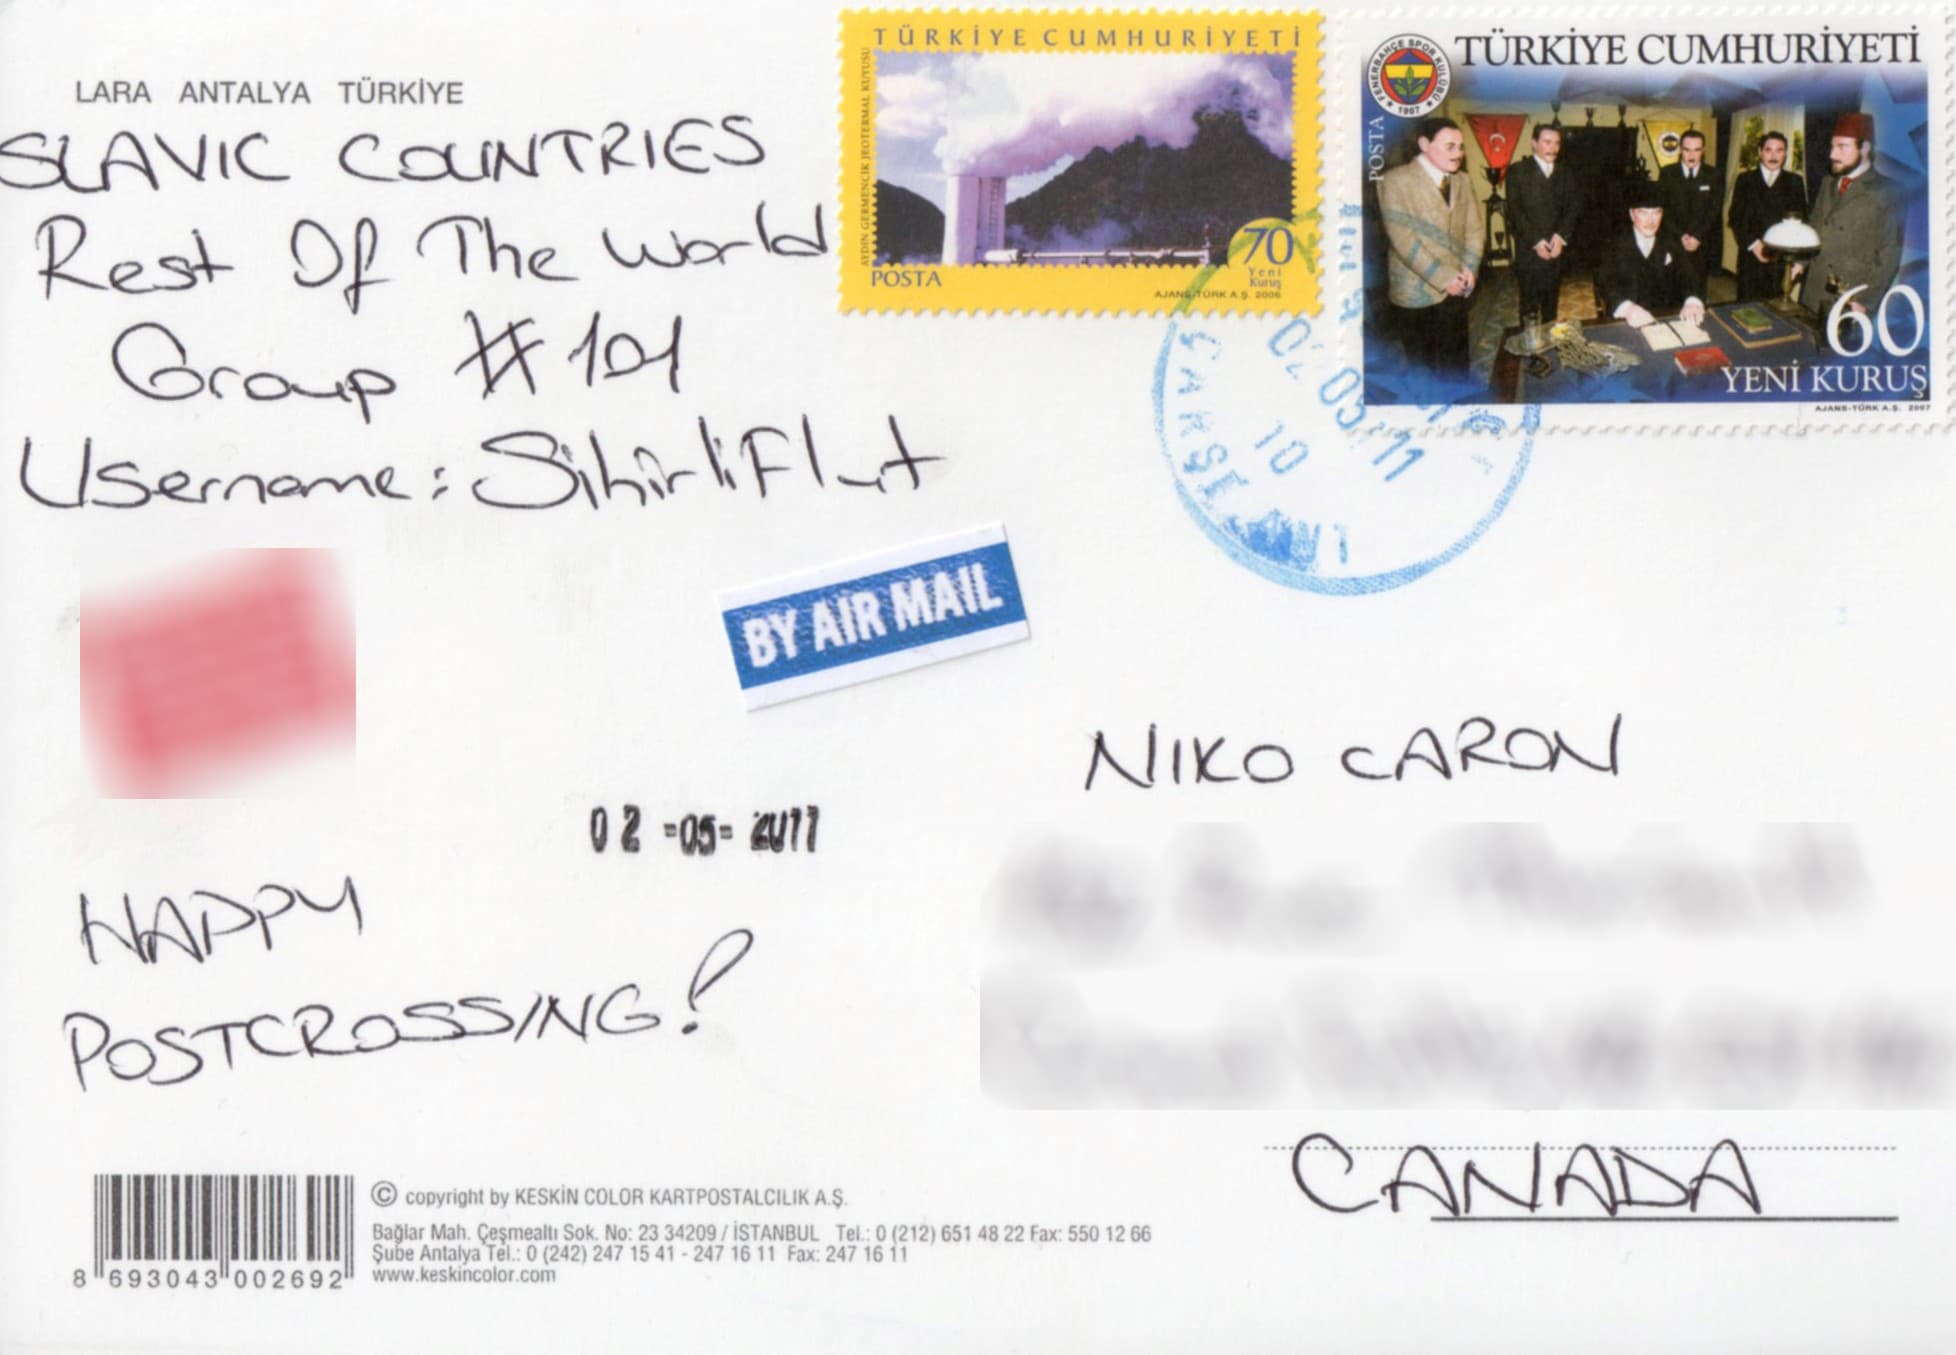 LARA ANTALYA TÜRKİYE
SLAVIC COUNTRIES
Rest Of The World
Group #101
Username: SihirliFlut
TÜRKİYE CUMHURİYETİ
AYDIN GERMENCİK JEOTERMAL KUYUSU
70
Yeni
Kuruş
POSTA
AJANS-TÜRK A.Ş. 2006
FENERBAHÇE SPOR KULÜBÜ
1907
TÜRKİYE CUMHURİYETİ
POSTA
60
YENİ KURUŞ
AJANS-TÜRK A.Ş. 2007
10
ÇARŞI
BY AIR MAIL
NIKO CARON
02-05-2011
HAPPY
POSTCROSSING!
CANADA
8 693043 002692
© copyright by KESKİN COLOR KARTPOSTALCILIK A.Ş.
Bağlar Mah. Çeşmealtı Sok. No: 23 34209 / İSTANBUL Tel.: 0 (212) 651 48 22 Fax: 550 12 66
Şube Antalya Tel.: 0 (242) 247 15 41 - 247 16 11 Fax: 247 16 11
www.keskincolor.com